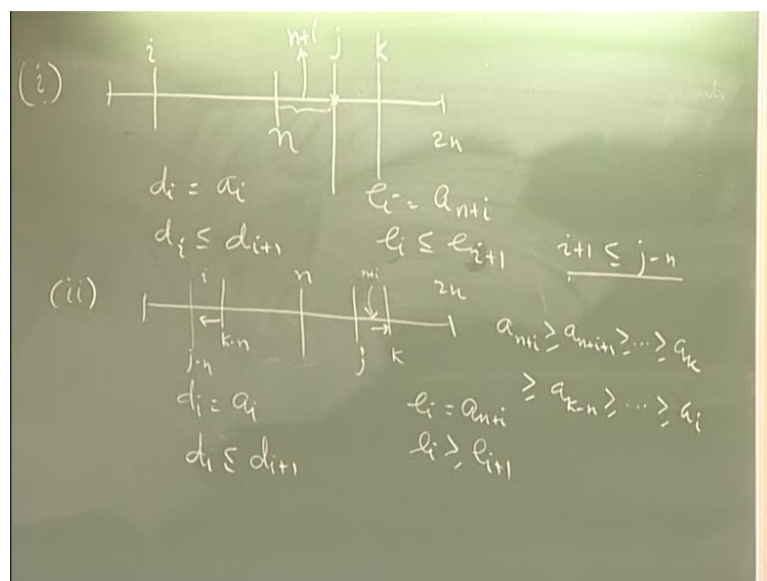 n+i j k
i
(i)
n 2n
dᵢ = aᵢ eᵢ = aₙ₊ᵢ
dᵢ ≤ dᵢ₊₁ eᵢ ≤ eᵢ₊₁ i+1 ≤ j-n
(ii) i n n+i 2n
k-n
j-n j k
aₙ₊ᵢ ≥ aₙ₊ᵢ₊₁ ≥ ... ≥ aₖ
≥ aₖ₋ₙ ≥ ... ≥ aᵢ
dᵢ = aᵢ eᵢ = aₙ₊ᵢ
dᵢ ≤ dᵢ₊₁ eᵢ ≥ eᵢ₊₁